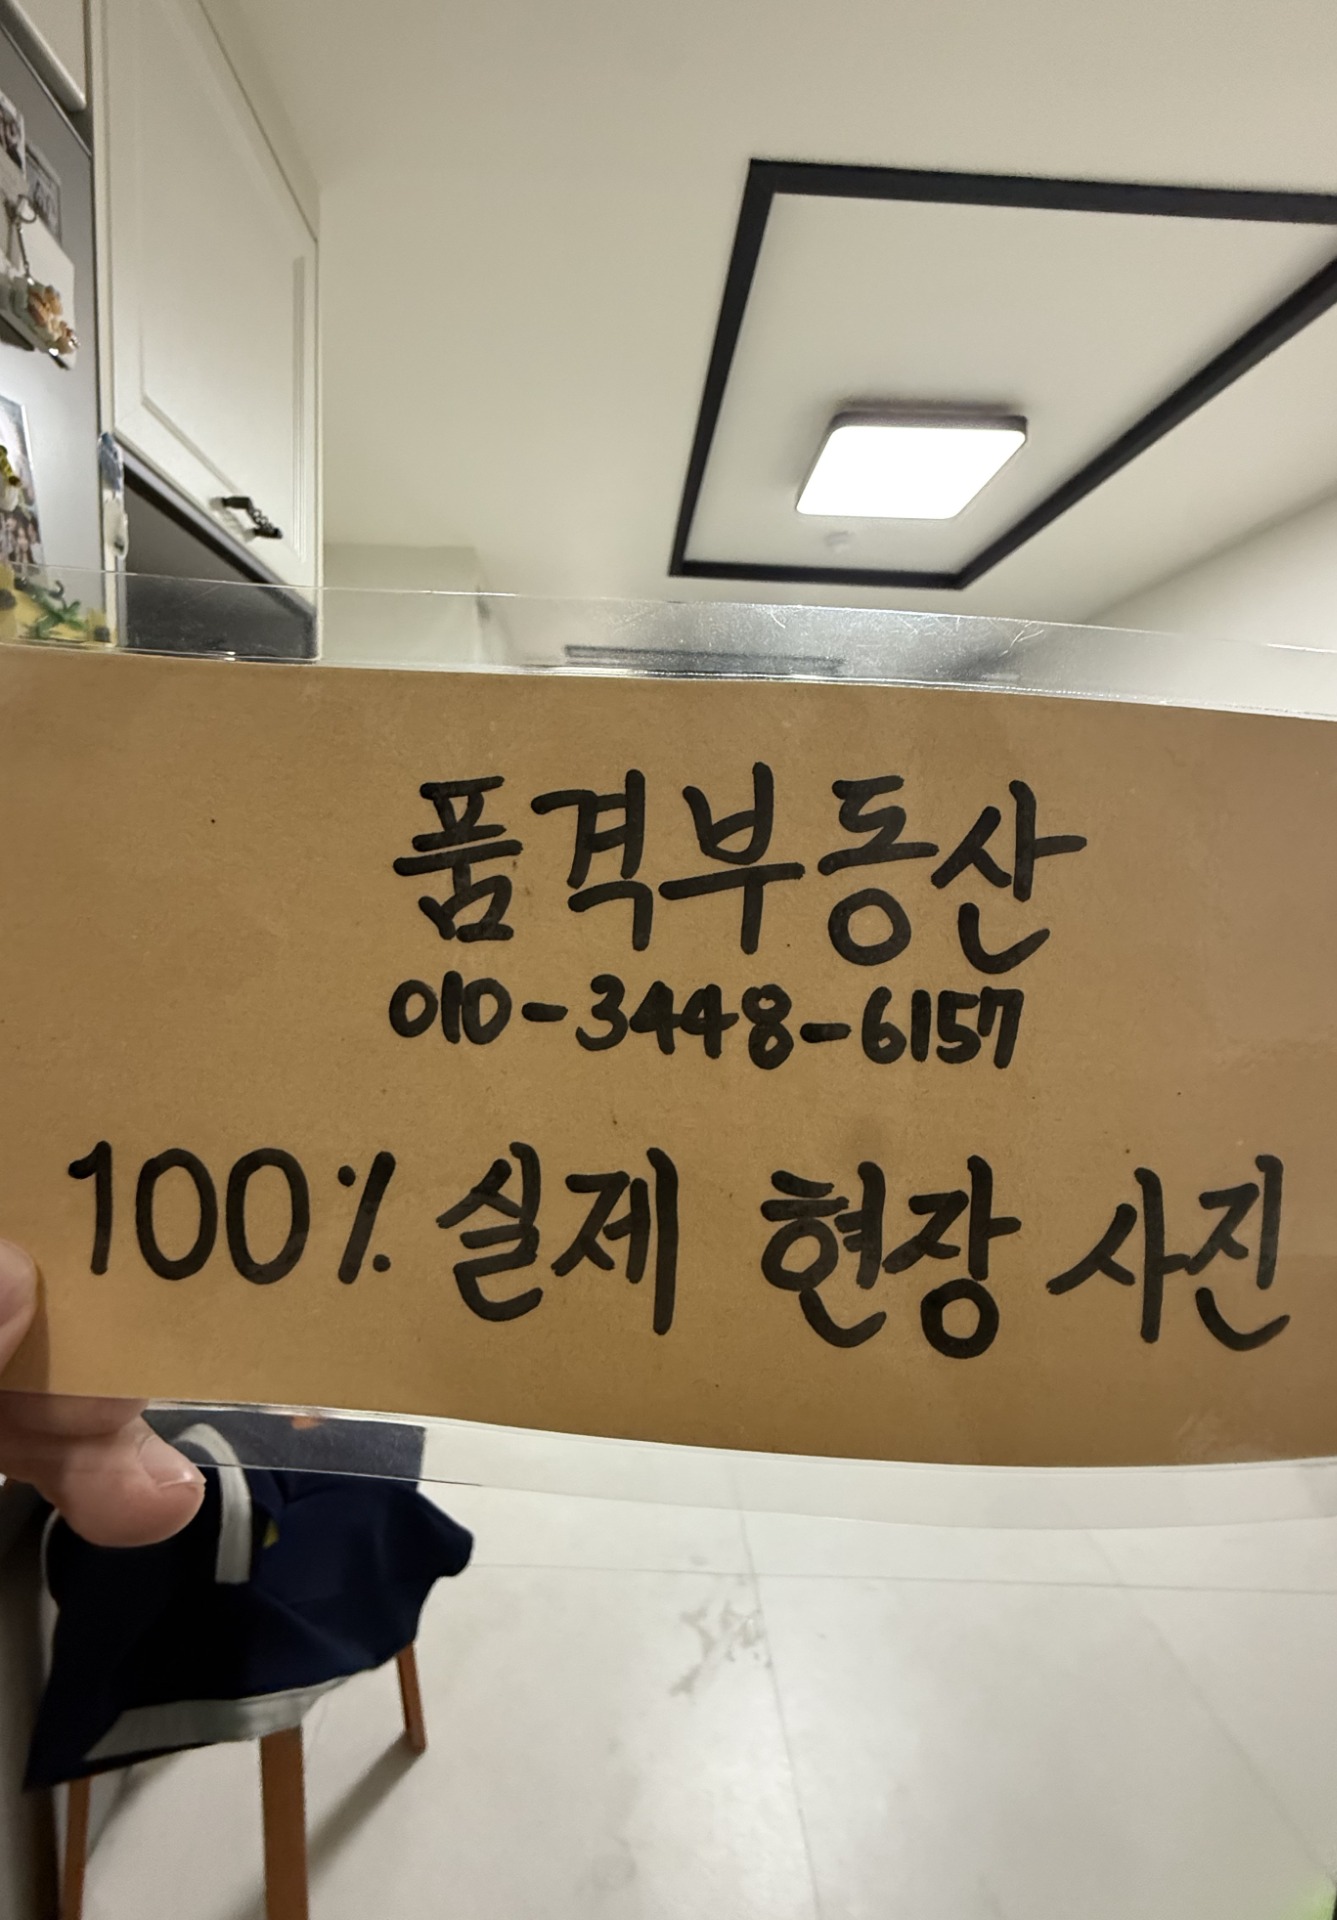 품격부동산
010-3448-6157
100% 실제 현장 사진